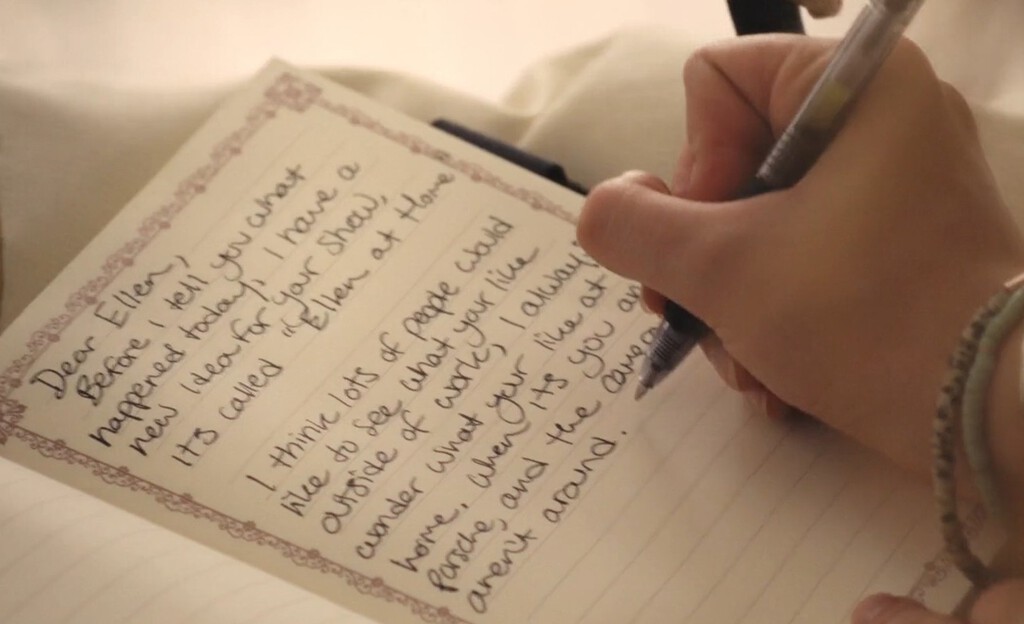 Dear Ellen,
Before I tell you what
happened today, I have a
new idea for your show,
its called "Ellen at Home
I think lots of people would
like to see what your like
outside of work, I always
wonder what your like at
home, when its you and
Porsche, and the
arent around.